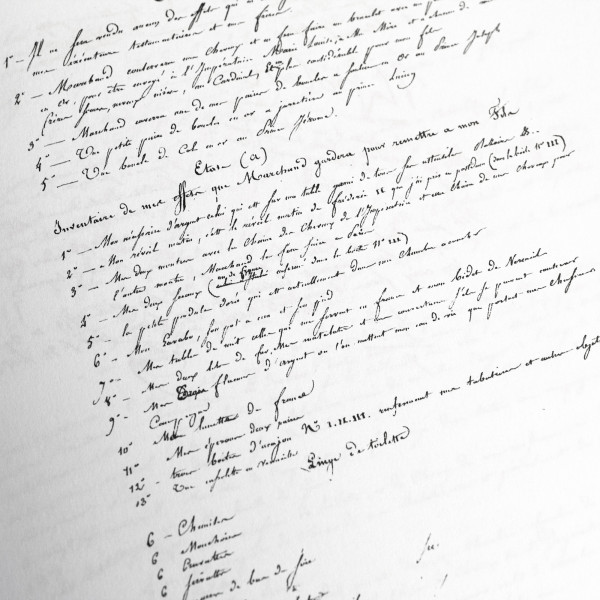 1° — Il ne sera vendu aucun des effets qui
mon exécuteur testamentaire et mes frères
2° — Marchand conservera mes cheveux et en fera faire un bracelet avec un
en or, pour être envoyé à l'Impératrice Marie Louise, à ma Mère et à chacun de
frères, soeurs, neveux, nièces, au Cardinal, et plus considérable pour mon fils
3° — Marchand enverra une de mes paires de boucles à souliers en or au Prince Joseph
4° — Une petite paire de boucles en or à jarretières au prince Lucien
5° — Une boucle de Col en or au Prince Jérome.
Etat (A)
Inventaire de mes effets que Marchand gardera pour remettre à mon Fils
1° — Mon nécessaire d'argent celui qui est sur ma table garni de tous ses ustensiles Rasoirs &..
2° — Mon réveil matin, c'est le réveil matin de Frédéric II que j'ai pris à Potsdam (dans la boîte N° III)
3° — Mes deux montres avec la Chaîne des Cheveux de l'Impératrice et une chaîne de mes cheveux pour
l'autre montre, Marchand la fera faire à Paris
4° — Mes deux Sceaux (un de France enfermé dans la boîte N° III)
5° — la petite pendule dorée qui est actuellement dans ma Chambre à coucher
6° — Mon Lavabo, son pot à eau et son pied
7° — Ma table de nuit celle qui me servait en france et mon bidet de Vermeil
8° — Mes deux lits de fer, Mes matelats et mes couvertures s'ils se peuvent conserver
9° — Mes flacons d'argent où l'on mettait mon eau de vie que portait mes Chasseurs
Campagne
10° Ma lunette de france
11° — Mes éperons deux paires
12° — trois boîtes d'acajou N° I. II. III. renfermant mes tabatières et autres objets
13° Une cassolette en vermeil
Linge de toilette
6 — Chemises
6 Mouchoirs
6 Cravattes
6 Serviettes
de bas de soie